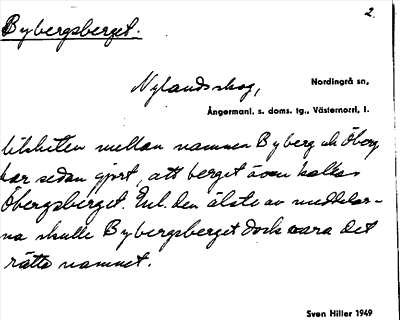 2.
Bybergsberget.
Nylandskog,
Nordingrå sn,
Ångermanl. s. doms. tg., Västernorrl. l.
likheten mellan namnen Byberg och Öberg
har sedan gjort, att berget även kallas
Öbergsberget. Enl. den älste av meddelar-
na skulle Bybergsberget dock vara det
rätta namnet.
Sven Hiller 1949